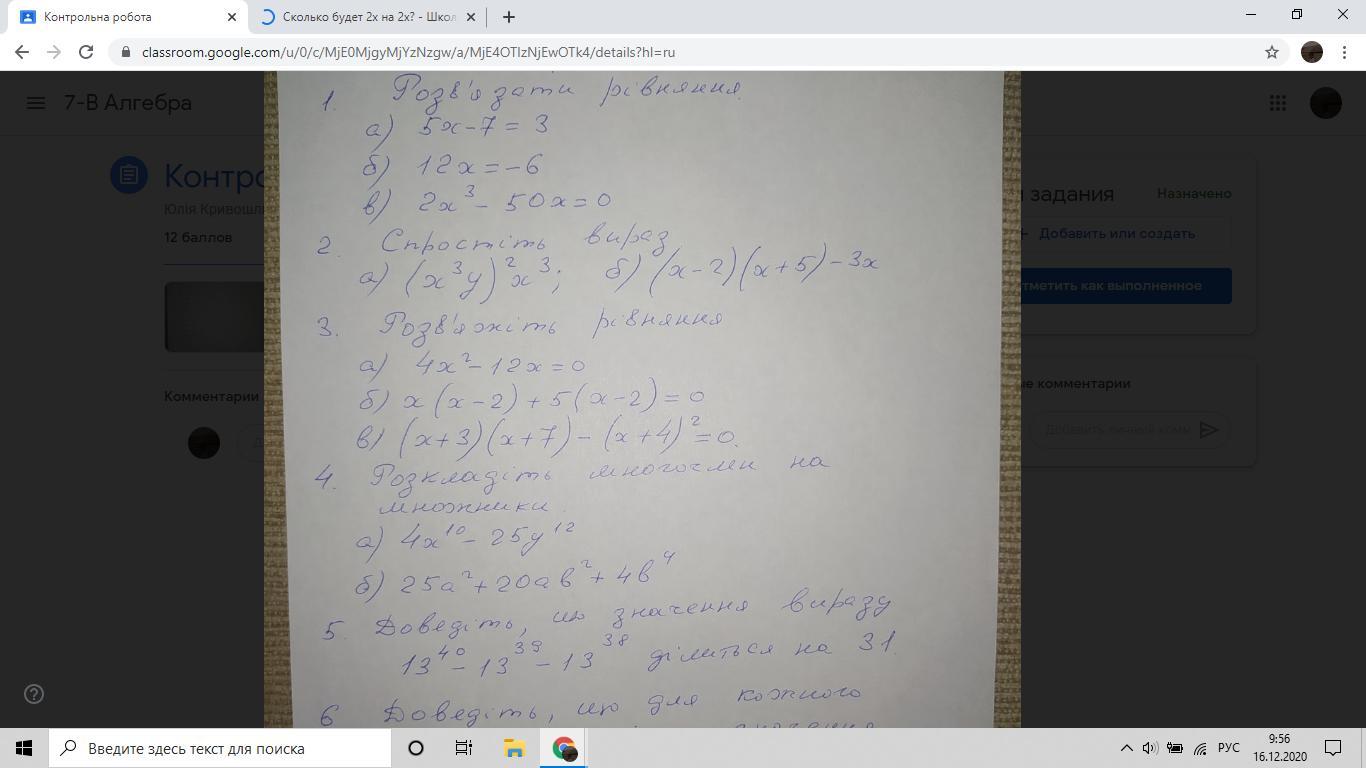 Контрольна робота
Сколько будет 2x на 2x? - Школ
classroom.google.com/u/0/c/MjE0MjgyMjYzNzgw/a/MjE4OTIzNjEwOTk4/details?hl=ru
7-В Алгебра
Контро
Юлія Кривошли
12 баллов
Комментарии
задания
Назначено
+ Добавить или создать
тметить как выполненное
ые комментарии
Добавить личный комм
1. Розв'язати рівняння.
а) 5x-7=3
б) 12x=-6
в) 2x³-50x=0
2. Спростіть вираз
а) (x³y)²x³; б) (x-2)(x+5)-3x
3. Розв'яжіть рівняння
а) 4x²-12x=0
б) x(x-2)+5(x-2)=0
в) (x+3)(x+7)-(x+4)²=0.
4. Розкладіть многочлен на
множники.
а) 4x¹⁰-25y¹²
б) 25a²+20ab²+4b⁴
5. Доведіть, що значення виразу
13⁴⁰-13³⁹-13³⁸ ділиться на 31.
6 Доведіть, що для кожного
Введите здесь текст для поиска
РУС
9:56
16.12.2020